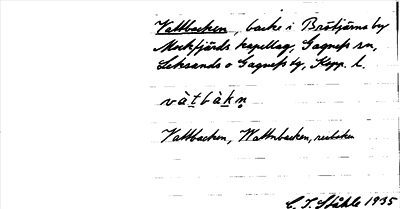 Vattbacken, backe i Bröttjärna by
Mockfjärds kapellag, Gagnefs sn,
Leksands o Gagnefs tg, Kopp. l.
vàt̲bàk̲n̥
Vattbacken, Wattnbacken,
C. I. Ståhle 1935